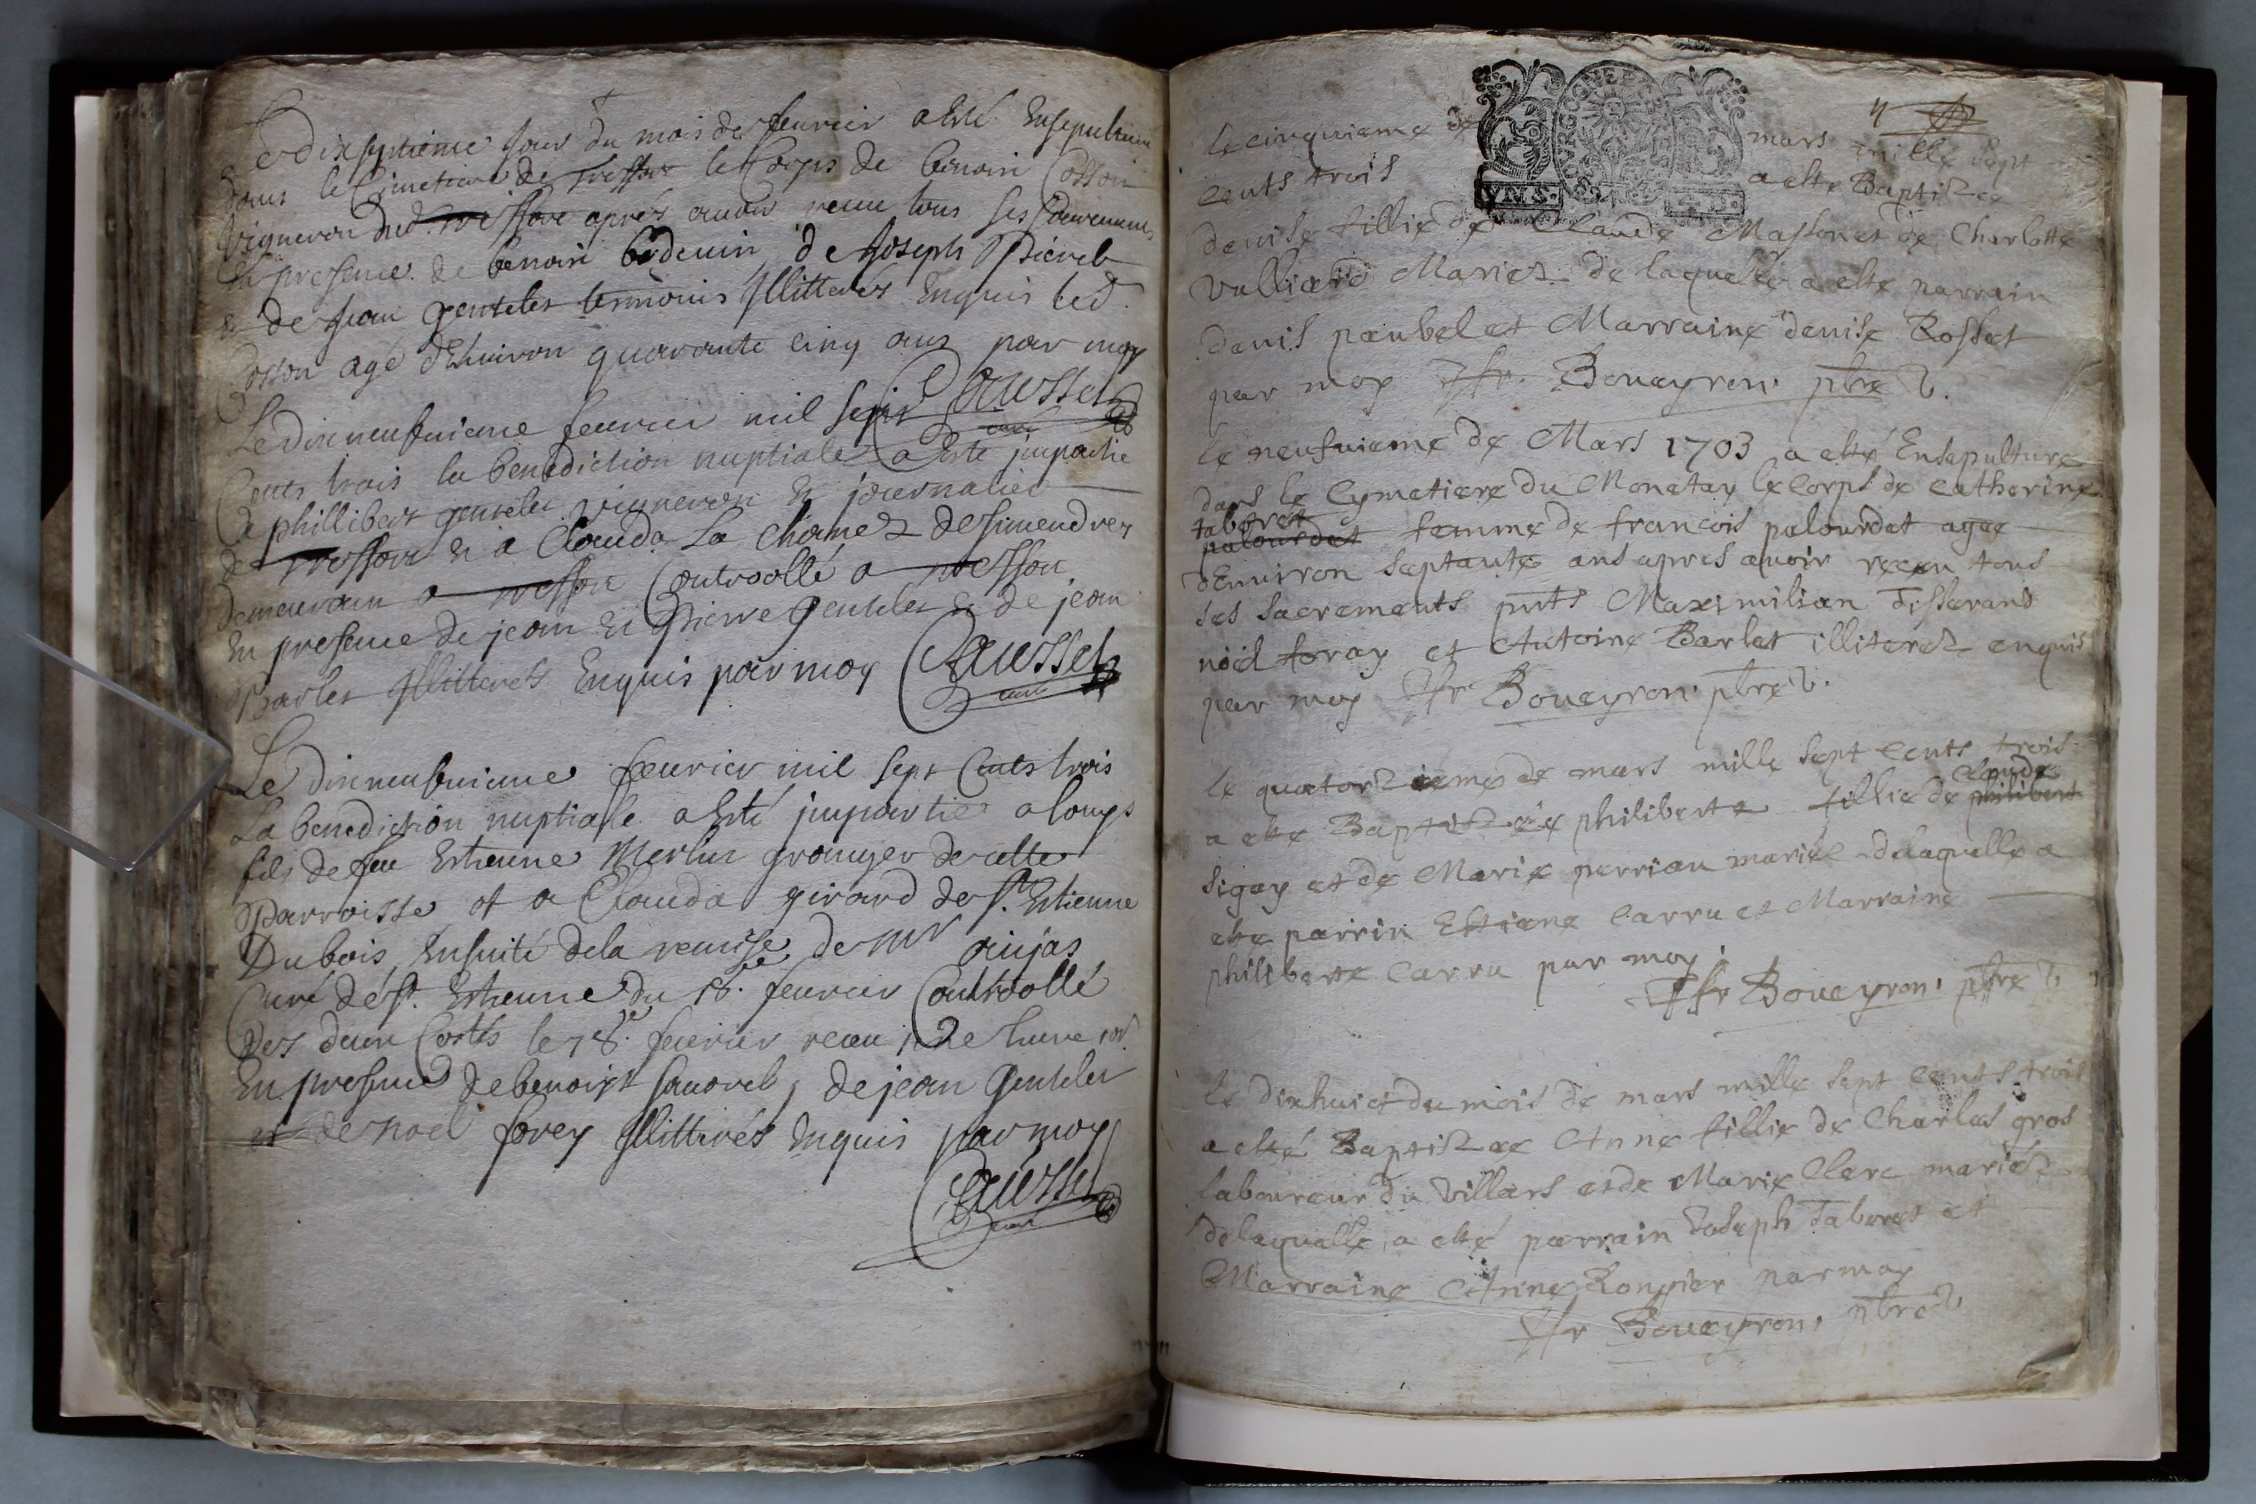 Le dix septieme jour du mois de feurier a esté Ensepulturé
dans le Cimetiere de Tressort le Corps de benoin Cosson
Vigneron dud. Tressort apres auoir receu tous ses Sacrements
En presence de benoin de Joseph
et de jean gentelet temoins Illitterés Enquis led.
Cosson agé d'Enuiron quarante cinq ans par moy
Caussel
curé
Le dix neufuieme feurier mil sept
Cents trois la benediction nuptiale a Esté jmpartie
a phillibert gentelet vigneron et journalier
de Tressort et a Clauda La de simendres
demeurant a Controollé a
En presence de jean et pierre gentelet et de jean
Barlet Illitterés Enquis par moy Caussel
curé
Le dix neufuieme feurier mil sept Cents trois
La benediction nuptiale a Esté jmpartie a louys
fils de feu Estienne Merlin granger de cette
Parroisse et a Clauda girard de st. Estienne
Dubois Ensuite de la remise de mr
Curé de st. Estienne du 18e feurier Controollé
le 18e feurier
En presence de benoist de jean gentelet
et de noel forey Illitterés Enquis par moy
Caussel
curé
le cinquieme de mars mille sept
cents trois a este Baptisee
denise fillie de Claude Masson et de Charlotte
Vulliard Mariez de laquelle a este parrain
denis paubel et Marraine denise Rosset
par moy Boueyron. pbre
le neufuieme de Mars 1703 a esté Ensepulture
dans le Cymetiere du Monetay le corps de catherine
taboret
palourdet femme de francois palourdet agee
d'Enuiron septante ans apres auoir receu tous
ses sacrements pnts Maximilian Tisserand
noel foray et Antoine Barlet illiterez enquis
par moy Boueyron. pbre
le quatorzieme de mars mille sept cents trois
claude
a este Baptizée philiberte fillie de philibert
sigay et de Marie perrian mariez de laquelle a
este parrin Estiene carru et Marraine
philiberte carru par moy
Boueyron. pbre
le dixhuict du mois de mars mille sept cents trois
a esté Baptisee Anne fillie de Charles gros
laboureur du Villars et de Marie Clerc mariéz
de laquelle a esté parrain Joseph Taboret et
Marraine Anne Rongier par moy
Boueyron. pbre